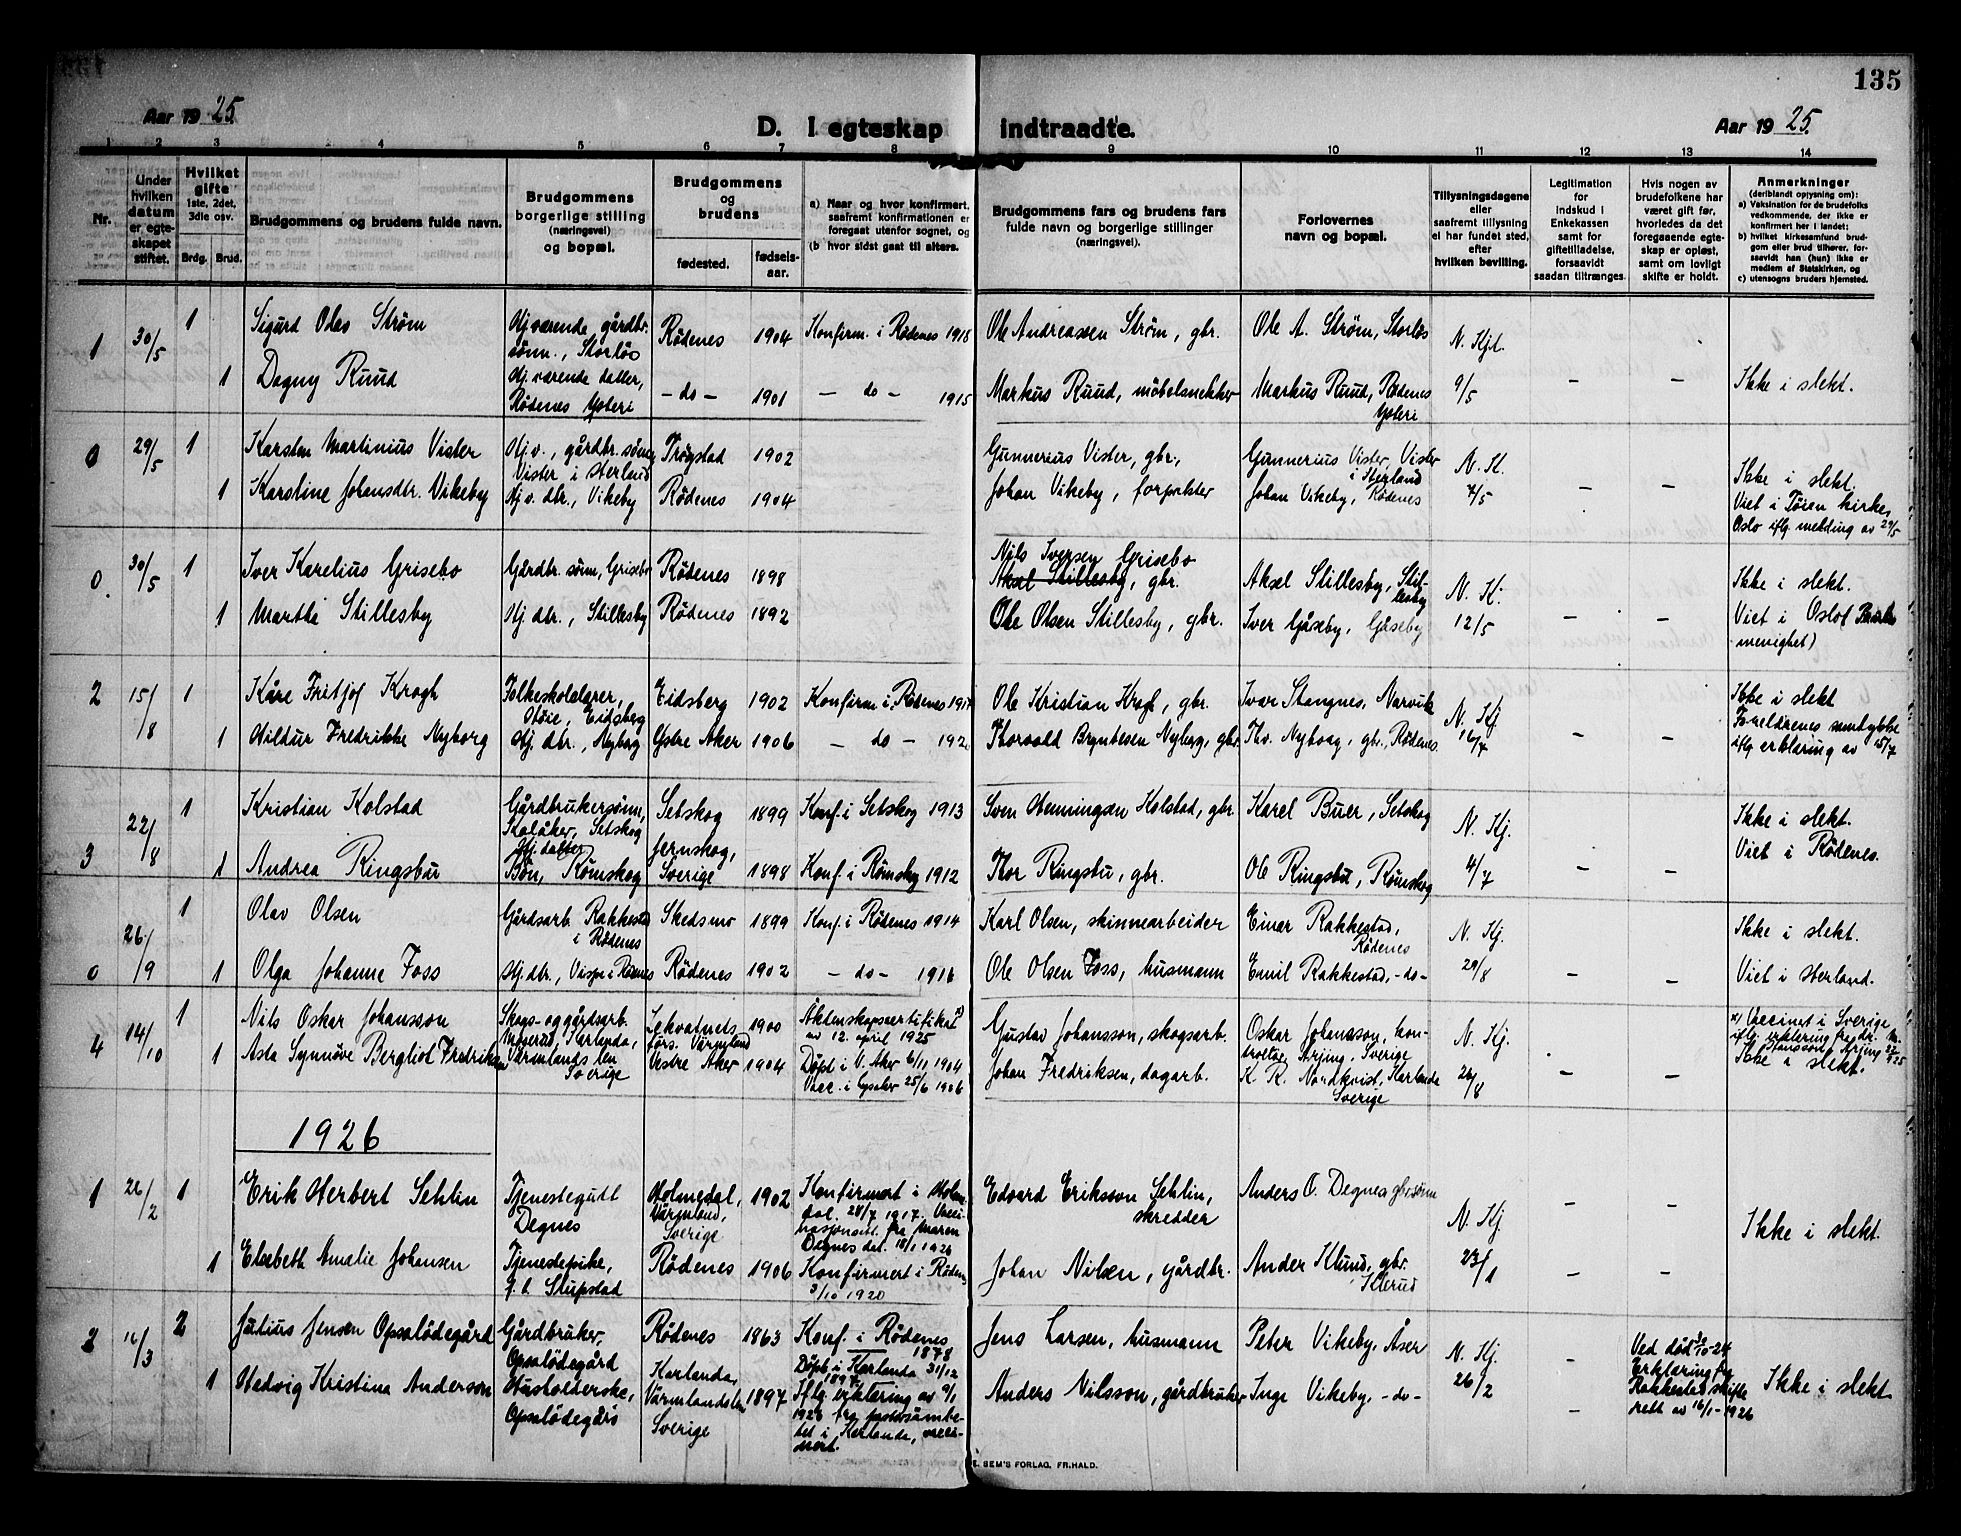 135
Aar 1925
D. I egteskap indtraadte.
Aar 1925
1 2 3 4 5 6 7 8 9 10 11 12 13 14
Nr.
Under hvilken datum er egteskapet stiftet.
Hvilket gifte 1ste, 2det, 3die osv.
Brdg. Brud.
Brudgommens og brudens fulde navn.
Brudgommens borgerlige stilling (næringsvei) og bopæl.
Brudgommens og brudens
fødested.
fødselsaar.
a) Naar og hvor konfirmert, saafremt konfirmationen er foregaat utenfor sognet, og
(b hvor sidst gaat til alters.
Brudgommens fars og brudens fars fulde navn og borgerlige stillinger (næringsvei).
Forlovernes navn og bopæl.
Tillysningsdagene eller saafremt tillysning ei har fundet sted, efter hvilken bevilling.
Legitimation for indskud i Enkekassen samt for giftetilladelse, forsaavidt saadan tiltrænges.
Hvis nogen av brudefolkene har været gift før, hvorledes da det foregaaende egteskap er opløst, samt om lovligt skifte er holdt.
Anmerkninger (deriblandt opjysning om):
a) Vaksination for de brudefolks vedkommende, der ikke er konfirmert her i landet;
b) hvilket kirkesamfund brudgom eller brud tilhører, forsaavidt han (hun) ikke er medlem af Statskirken, og
c) utensogns bruders hjemsted.
1 30/5 1 Sigurd Olav Strøm Hj.værende gårdbr. sønn., Storløs Rødenes 1904 Konfirm. i Rødenes 1918 Ole Andreassen Strøm, gbr. Ole A. Strøm, Storløs N. Kjd. 9/5
1 Dagny Ruud Hj.værende datter, Rødenes Ysteri – do – 1901 – do – 1915 Markus Ruud, møbelsnekker Markus Ruud, Rødenes Ysteri – – Ikke i slekt.
0 29/5 1 Karsten Martinius Vister Hj.v., gårdbr. sønn, Vister i Øterland Trøgstad 1902 Gunnerius Vister, gbr., Gunnerius Vister, Vister N. K. 4/5
1 Karstine Johansdtr. Vikeby Hj.v. dtr., Vikeby Rødenes 1904 Johan Vikeby, forpakter Johan Vikeby, Rødenes – – Ikke i slekt. Viet i Tøien kirke, Oslo iflg melding av 29/5
0 30/5 1 Iver Karelius Grisebo Gårdbr. sønn, Grisebo Rødenes 1898 Nils Iversen Grisebo Aksel Stillesby, gbr. Aksel Stillesby, Stillesby N. K. 12/5
1 Martha Stillesby Hj. dtr., Stillesby Rødenes 1892 Ole Olsen Stillesby, gbr. Iver Gåseby, Gåseby – – Ikke i slekt. Viet i Oslo menighet)
2 15/8 1 Kåre Fritjof Krogh Folkeskolelærer, Eidsberg Eidsberg 1902 Konfirm. i Rødenes 1917 Ole Kristian Krogh, gbr. Ivar Stangnes, Narvik N. Kj 16/7
1 Hildur Fredrikke Nyborg Hj. dtr., Nyborg Østre Aker 1906 – do – 1920 Thorvald Nyborg, gbr. Th. Nyborg, gbr., Rødenes. – – Ikke i slekt Foreldrenes samtykke iflg erklæring av 15/7
3 22/8 1 Kristian Kolstad Gårdbrukersønn, Setskog Setskog 1899 Konf. i Setskog 1913 Sven Henningsen Kolstad, gbr. Karel Buer, Setskog N. Kj. 4/7
1 Andrea Ringsbu Hj. datter Bøn, Rømskog Jernskog, Sverige 1898 Konf. i Rømskog 1912 Thor Ringsbu, gbr. Ole Ringsbu, Rømskog – – Ikke i slekt. Viet i Rødenes.
0 26/9 1 Olav Olsen Gårdsarb. Rakkestad i Rødenes Skedsmo 1899 Konf. i Rødenes 1914 Karl Olsen, skinnearbeider Einar Rakkestad, Rødenes N. Kj. 29/8
1 Olga Johanne Foss Hj. dtr., i Rødenes Rødenes 1902 – do – 1916 Ole Olsen Foss, husmann Emil Rakkestad, – do – – – Ikke i slekt. Viet i Øterland.
4 14/10 1 Nils Oskar Johansson Skogs- og gårdsarb. Karlanda, Värmlands len Sverige Värmland 1900 Äktenskapscertifikat av 12. april 1925 Gustav Johansson, skogsarb. Oskar Johansson, Årjäng. Sverige N. Kj. 26/8
1 Asta Synnøve Bergliot Fredriksen Vestre Aker 1904 Døpt i V. Aker 6/11 1904 Vacc. i 25/6 1906 Johan Fredriksen, dagarb. K. R. Nordkvist, Karlanda Sverige – – x) Vaccinert i Sverige iflg. erklæring fra dr. Ikke i slekt.
1926
1 26/2 1 Erik Herbert Sehlin Tjenestegutt Degnes Holmedal, Värmland, Sverige 1902 Konfirmert i Holmedal. 28/7 1917. Degnes 18/1 1926 Edvard Eriksson Sehlin, skredder Anders O. Degnes gbrsønn N. Kj. 23/1 – –
1 Elisabeth Amalie Johansen Tjenestepike, Stupstad Rødenes 1906 Konfirmert i Rødenes 3/10 1920 Johan Nilsen, gårdbr. Ander Klund, gbr. Klerud – – Ikke i slekt.
2 16/3 2 Julius Jensen Opsalødegård Gårdbruker, Opsalødegård Rødenes 1863 Konf. i Rødenes 1878 Jens Larsen, husmann Peter Vikeby, Åser N. Kj. 26/2 –
1 Hedvig Kristina Anderson Husholderske, Opsalødegård Karlanda, Värmlandslen Sverige 1897 Døpt i Karlanda 31/12 1897. Iflg. erklæring av 9/1 1926 fra pastorsämbetet i Karlanda, vaccinert. Anders Nilsson, gårdbruker Inge Vikeby, – do – – Ved død 10-24 Erklæring fra Rakkestad skifterett av 16/1-1926 Ikke i slekt
E. SEM'S FORLAG, FR.HALD.